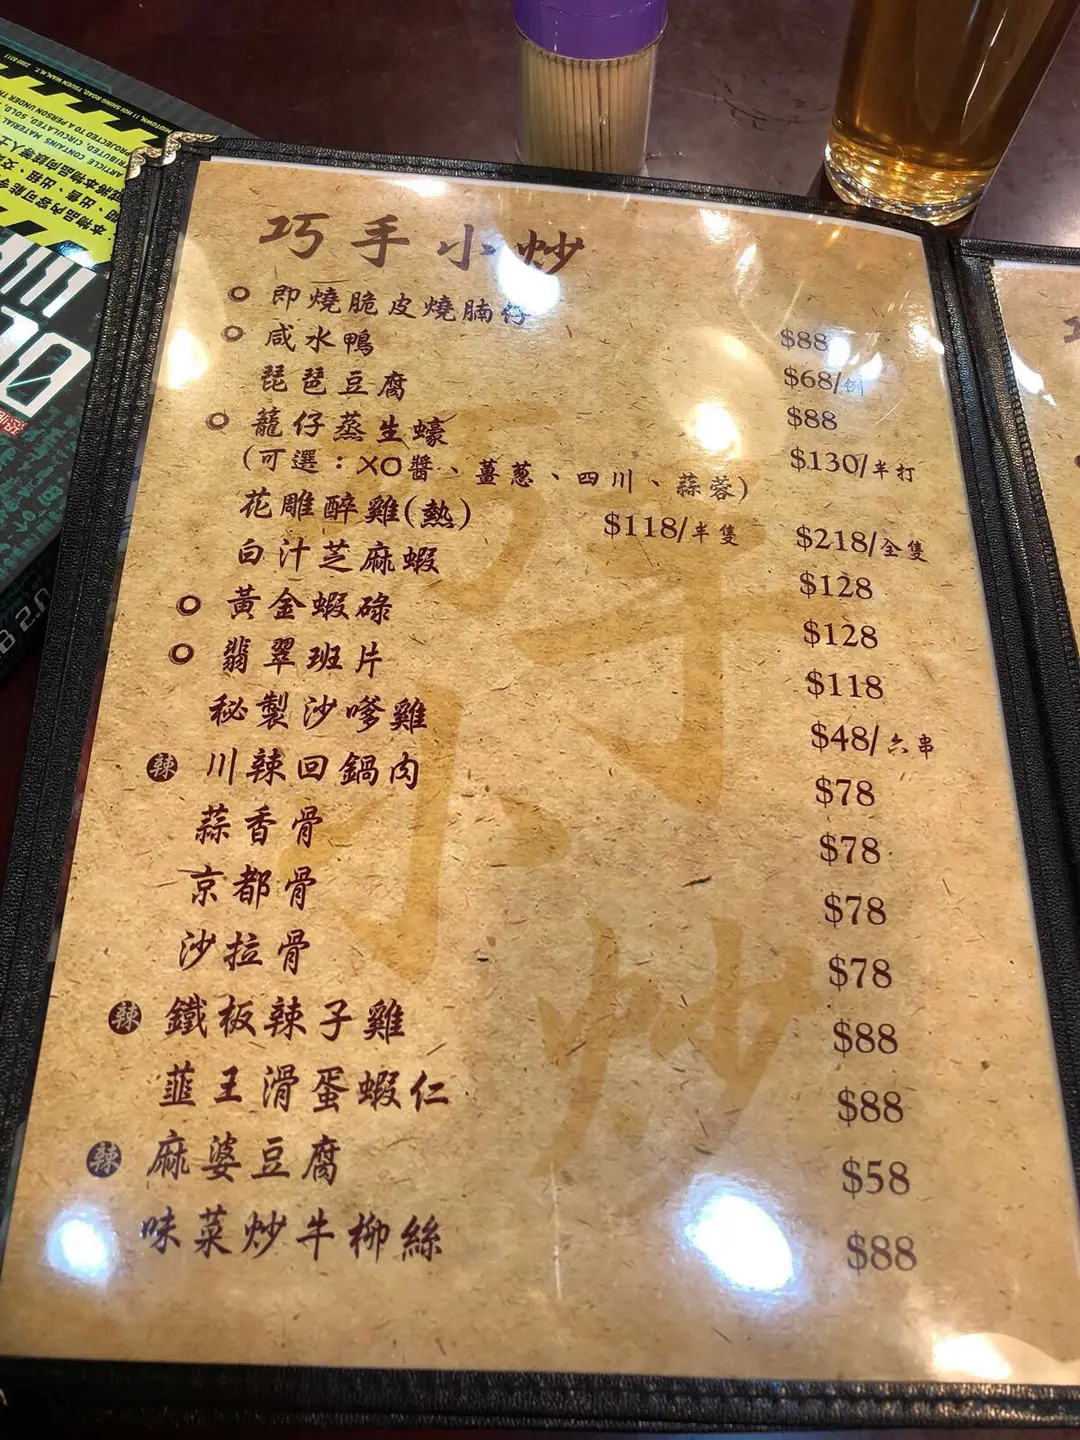 巧手小炒
即燒脆皮燒腩仔 $88
咸水鴨 $68/例
琵琶豆腐 $88
籠仔蒸生蠔 $130/半打
(可選：XO醬、薑葱、四川、蒜蓉)
花雕醉雞(熱) $118/半隻 $218/全隻
白汁芝麻蝦 $128
黃金蝦碌 $128
翡翠班片 $118
秘製沙嗲雞 $48/六串
辣 川辣回鍋肉 $78
蒜香骨 $78
京都骨 $78
沙拉骨 $78
辣 鐵板辣子雞 $88
韮王滑蛋蝦仁 $88
辣 麻婆豆腐 $58
味菜炒牛柳絲 $88
巧手小炒
MIDTOWN, 11 HOI SHING ROAD, TSUEN WAN, N.T.